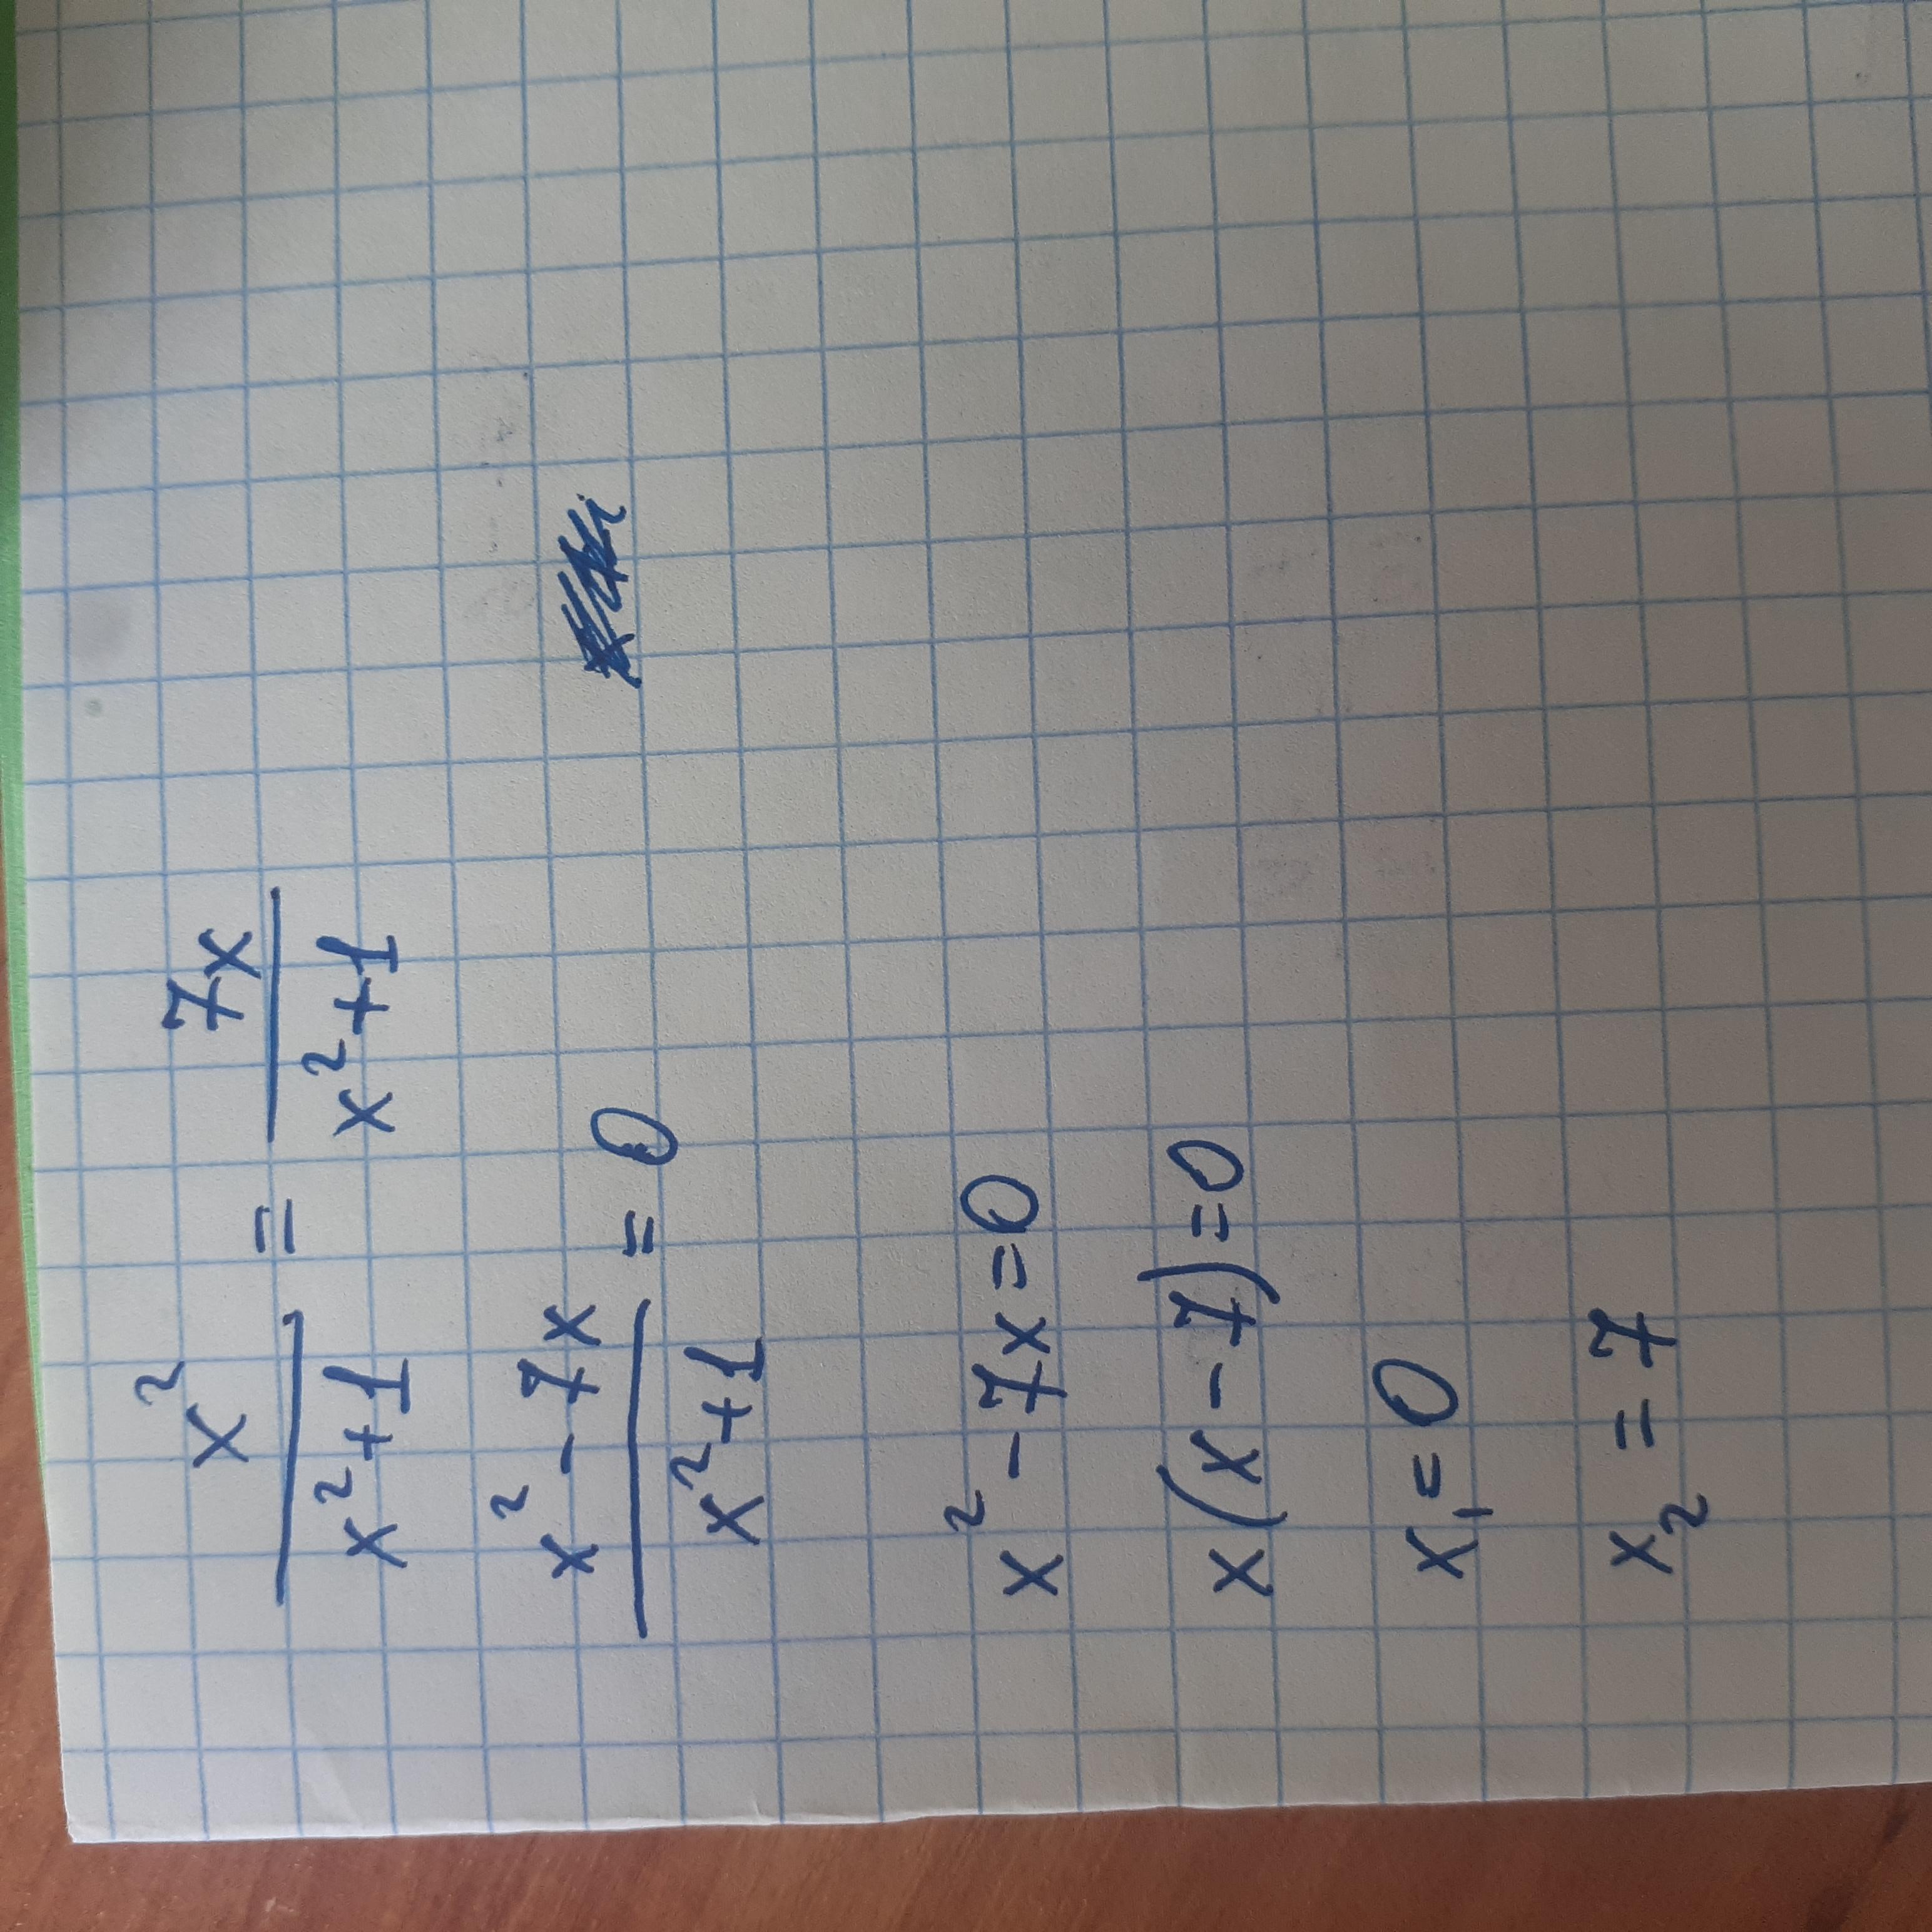 x²/(x²+1) = 7x/(x²+1)
(x²-7x)/(x²+1) = 0
x²-7x=0
x(x-7)=0
x₁=0
x₂=7